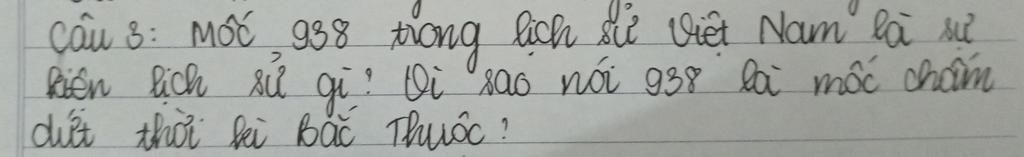 Câu 3: Mốc 938 trong lịch sử Việt Nam là sự
kiện lịch sử gì? Vì sao nói 938 là mốc chấm
dứt thời kì Bắc Thuộc?